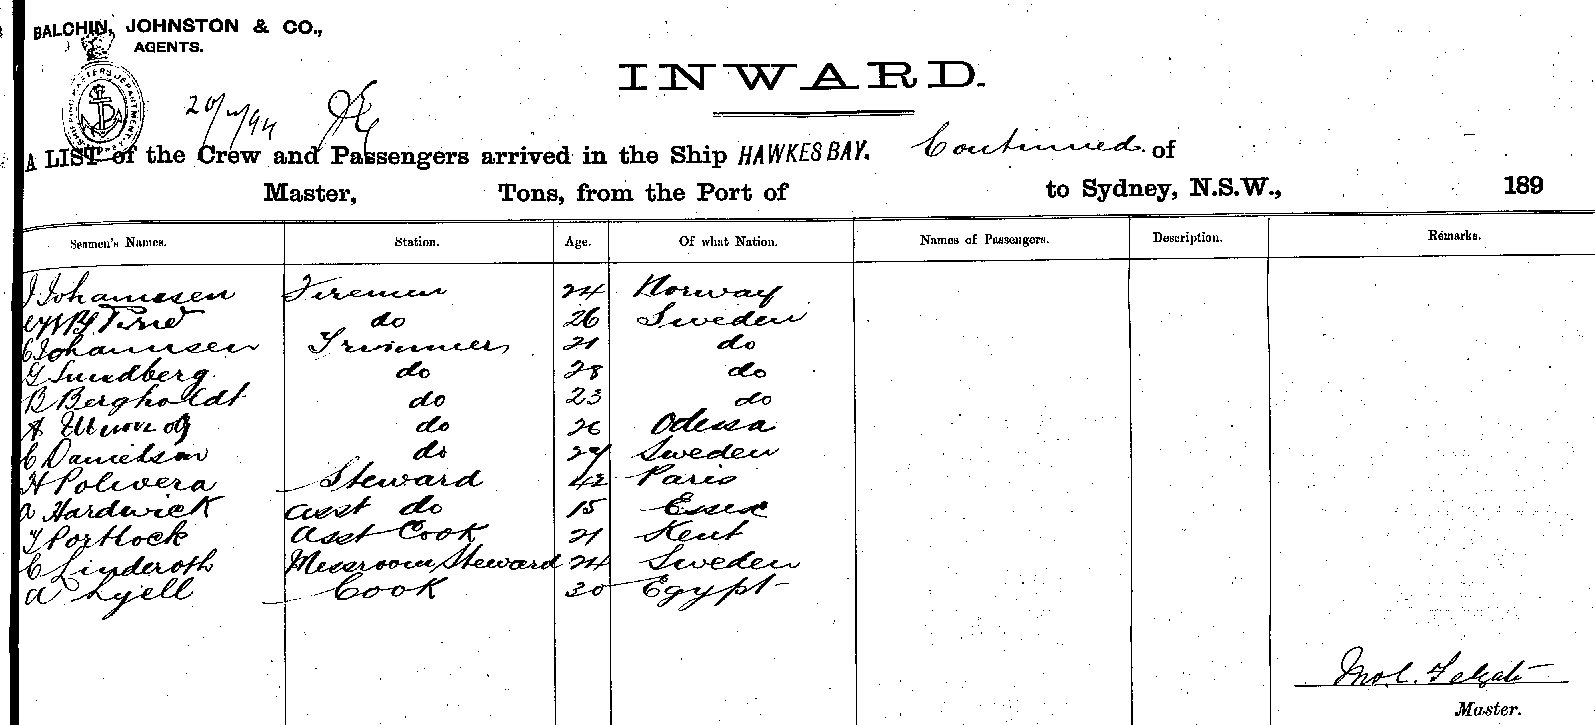 BALCHIN, JOHNSTON & CO.,
AGENTS.
INWARD.
A LIST of the Crew and Passengers arrived in the Ship HAWKES BAY. Continued of
Master, Tons, from the Port of to Sydney, N.S.W., 189
Seamen's Names. Station. Age. Of what Nation. Names of Passengers. Description. Remarks.
J Johannesen Firemen 24 Norway
do 26 Sweden
C Johannsen Trimmers 21 do
G Sundberg do 28 do
B Bergholdt do 23 do
A do 26 Odessa
C Danielson do Sweden
H Polivera Steward 42 Paris
A Hardwick Asst do 15 Essex
T Portlock Asst Cook 21 Kent
C Linderoth Messroom Steward 24 Sweden
A Lyell Cook 30 Egypt
Master.